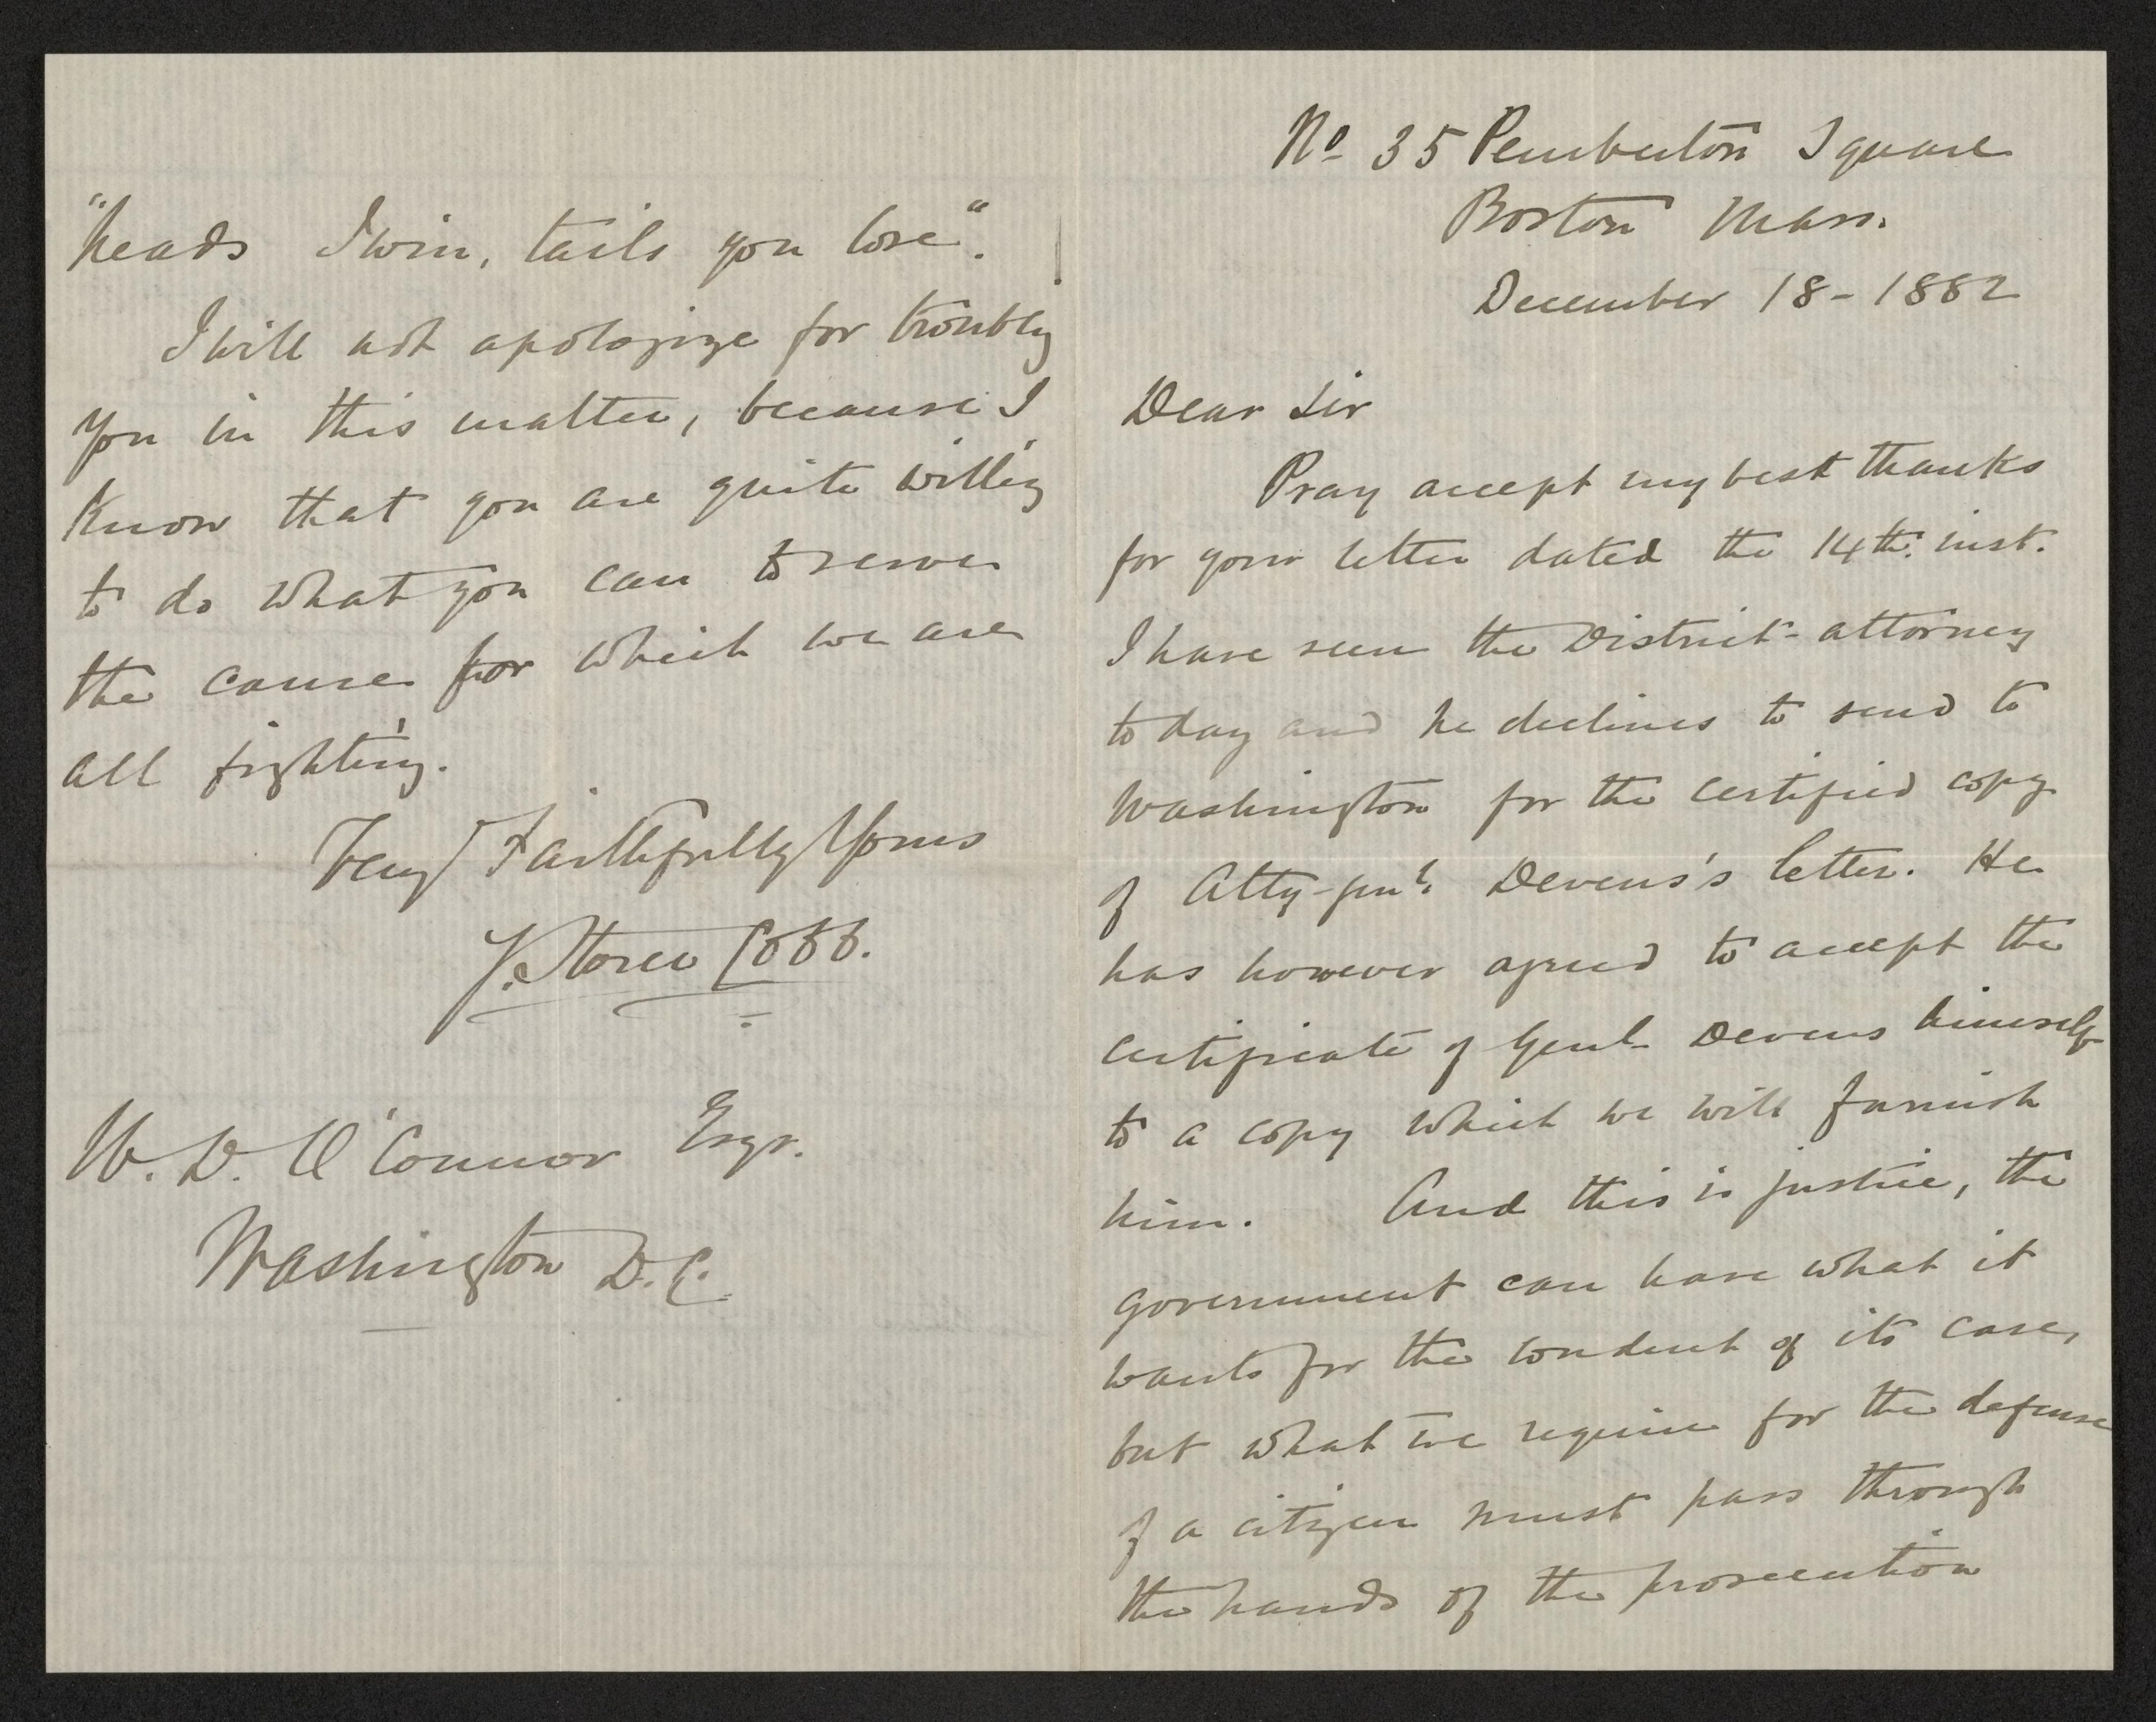 No. 35 Pemberton Square
Boston Mass.
December 18 - 1882
Dear Sir
Pray accept my best thanks
for your letter dated the 14th. inst.
I have seen the District-attorney
today and he declines to send to
Washington for the certified copy
of Atty-genl. Devens's letter. He
has however agreed to accept the
certificate of Genl- Devens himself
to a copy which we will furnish
him. And this is justice, the
government can have what it
wants for the conduct of its case,
but what we require for the defense
of a citizen must pass through
the hands of the prosecution
"heads I win, tails you lose".
I will not apologize for troubling
you in this matter, because I
know that you are quite willing
to do what you can to serve
the cause for which we are
all fighting.
Very Faithfully Yours
J. Storer Cobb.
W. D. O'Connor Esqr.
Washington D.C.